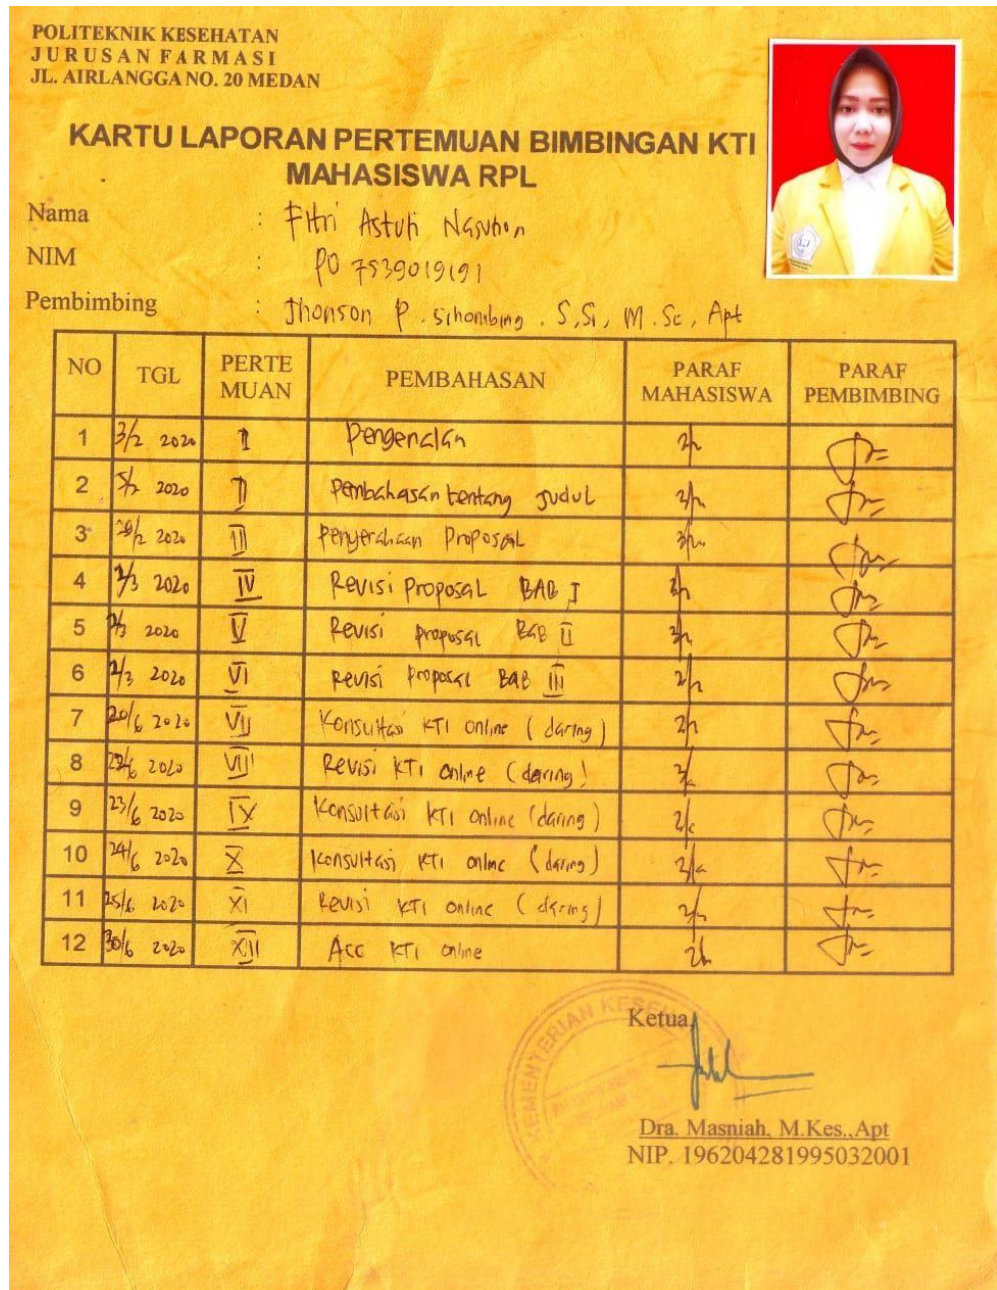 POLITEKNIK KESEHATAN
JURUSAN FARMASI
JL. AIRLANGGA NO. 20 MEDAN
KARTU LAPORAN PERTEMUAN BIMBINGAN KTI
MAHASISWA RPL
Nama : Fitri Astuti Nasution
NIM : PO 7539019191
Pembimbing : Jhonson P. Sihombing. S,Si, M.Sc, Apt
NO TGL PERTE MUAN PEMBAHASAN PARAF MAHASISWA PARAF PEMBIMBING
1 3/2 2020 I Pengenalan
2 5/2 2020 II Pembahasan tentang Judul
3 2020 III Penyerahaan Proposal
4 2020 IV Revisi Proposal BAB I
5 2020 V Revisi proposal BAB II
6 2020 VI Revisi Proposal BAB III
7 20/6 2020 VII Konsultasi KTI online (daring)
8 2020 VIII Revisi KTI online (daring)
9 23/6 2020 IX Konsultasi KTI online (daring)
10 24/6 2020 X Konsultasi KTI online (daring)
11 25/6 2020 XI Revisi KTI online (daring)
12 30/6 2020 XII Acc KTI online
KEMENTERIAN
Ketua,
Dra. Masniah, M.Kes.,Apt
NIP. 196204281995032001